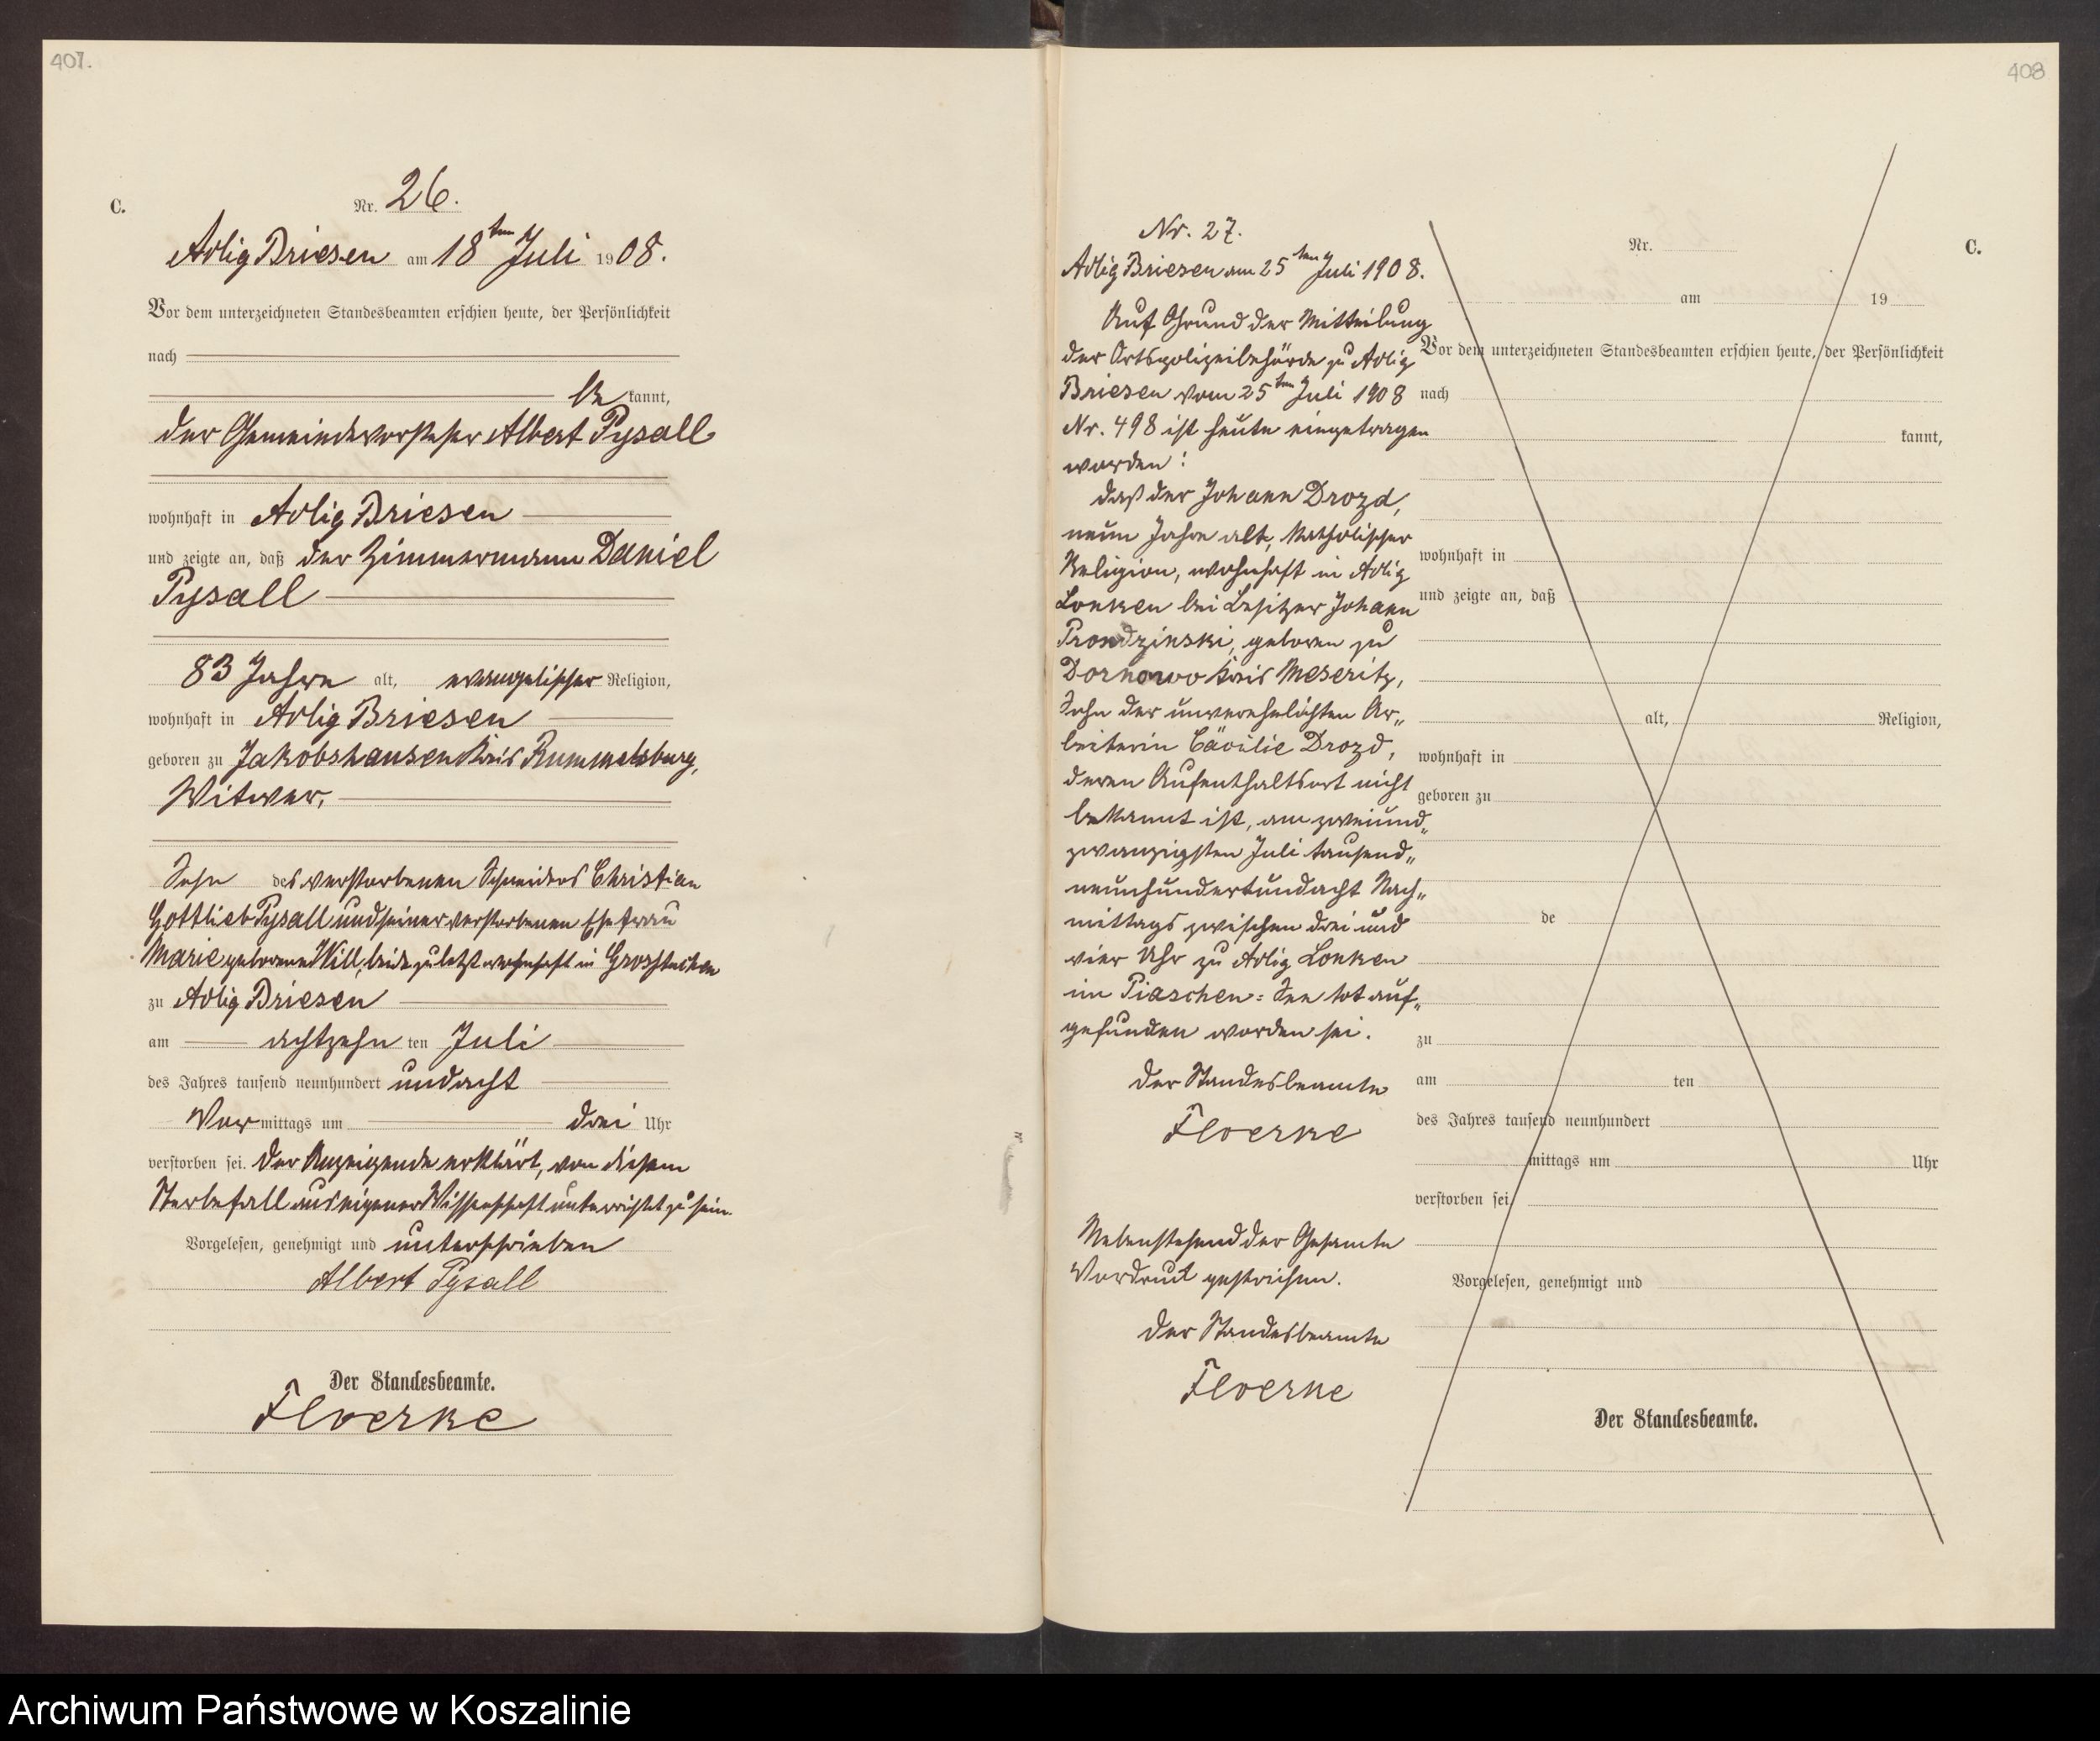 407.
C.
Nr. 26.
Adlig Briesen am 18ten Juli 1908.
Vor dem unterzeichneten Standesbeamten erschien heute, der Persönlichkeit
nach
be kannt,
der Gemeindevorsteher Albert Pysall
wohnhaft in Adlig Briesen
und zeigte an, daß der Zimmermann Daniel
Pysall
83 Jahre alt, evangelischer Religion,
wohnhaft in Adlig Briesen
geboren zu Jakobshausen Kreis Rummelsburg,
Witwer,
Sohn des verstorbenen Schneiders Christian
Gottlieb Pysall und seiner verstorbenen Ehefrau
Marie geborene Will, beide zuletzt wohnhaft in
zu Adlig Briesen
am achtzehn ten Juli
des Jahres tausend neunhundert undacht
Vor mittags um drei Uhr
verstorben sei. Der Anzeigende erklärt, von diesem
Sterbefall aus eigener Wissenschaft unterrichtet zu sein.
Vorgelesen, genehmigt und unterschrieben
Albert Pysall
Der Standesbeamte.
Floerke
408
Nr. 27.
Adlig Briesen am 25ten Juli 1908.
Auf Grund der Mitteilung
der Ortspolizeibehörde zu Adlig
Briesen vom 25ten Juli 1908
Nr. 498 ist heute eingetragen
worden:
daß der Johann Drozd,
neun Jahre alt, katholischer
Religion, wohnhaft in Adlig
Lonken bei Besitzer Johann
Prondzinski, geboren zu
Dornowo Kreis Meseritz,
Sohn der unverehelichten Ar„
beiterin Cäcilie Drozd,
deren Aufenthaltsort nicht
bekannt ist, am zweiund„
zwanzigsten Juli tausend„
neunhundertundacht Nach„
mittags zwischen drei und
vier Uhr zu Adlig Lonken
im Piaschen=See tot auf„
gefunden worden sei.
Der Standesbeamte
Floerke
Nebenstehend der Gesamte
Vordruck gestrichen.
Der Standesbeamte
Floerke
Nr.
C.
am 19
Vor dem unterzeichneten Standesbeamten erschien heute, der Persönlichkeit
nach
kannt,
wohnhaft in
und zeigte an, daß
alt, Religion,
wohnhaft in
geboren zu
de
zu
am ten
des Jahres tausend neunhundert
mittags um Uhr
verstorben sei
Vorgelesen, genehmigt und
Der Standesbeamte.
Archiwum Państwowe w Koszalinie